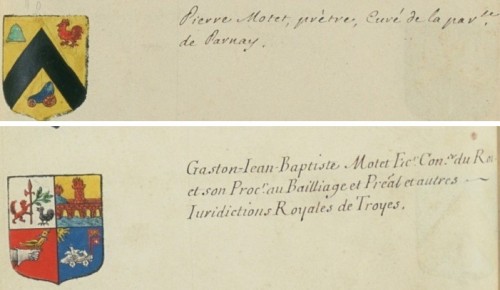 Pierre Motet, prêtre, Curé de la par.lle
de Parnay.
Gaston-Jean-Baptiste Motet Ec.r Con.er du Roi
et son Proc.r au Bailliage et Préal et autres
Iuridictions Royales de Troyes.